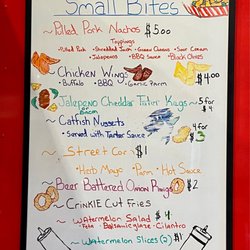 Small Bites
~ Pulled Pork Nachos $5.00
Toppings
• Pulled Pork • Shredded • Queso • Sour Cream
• Jalapenos • BBQ Sauce • Black Olives
~ Chicken Wings $4.00
• Buffalo • BBQ • Garlic Parm
~ Jalapeno Cheddar Tater Kegs ~ 5 for
Bacon $4
~ Catfish Nuggets 4 for
• Served with Tartar Sauce $3
~ Street Corn $1
• Herb Mayo • Parm • Hot Sauce
~ Beer Battered Onion Rings $2
~ Crinkle Cut Fries
~ Watermelon Salad $4
• Feta • Balsamic glaze • Cilantro
~ Watermelon Slices (2) $1